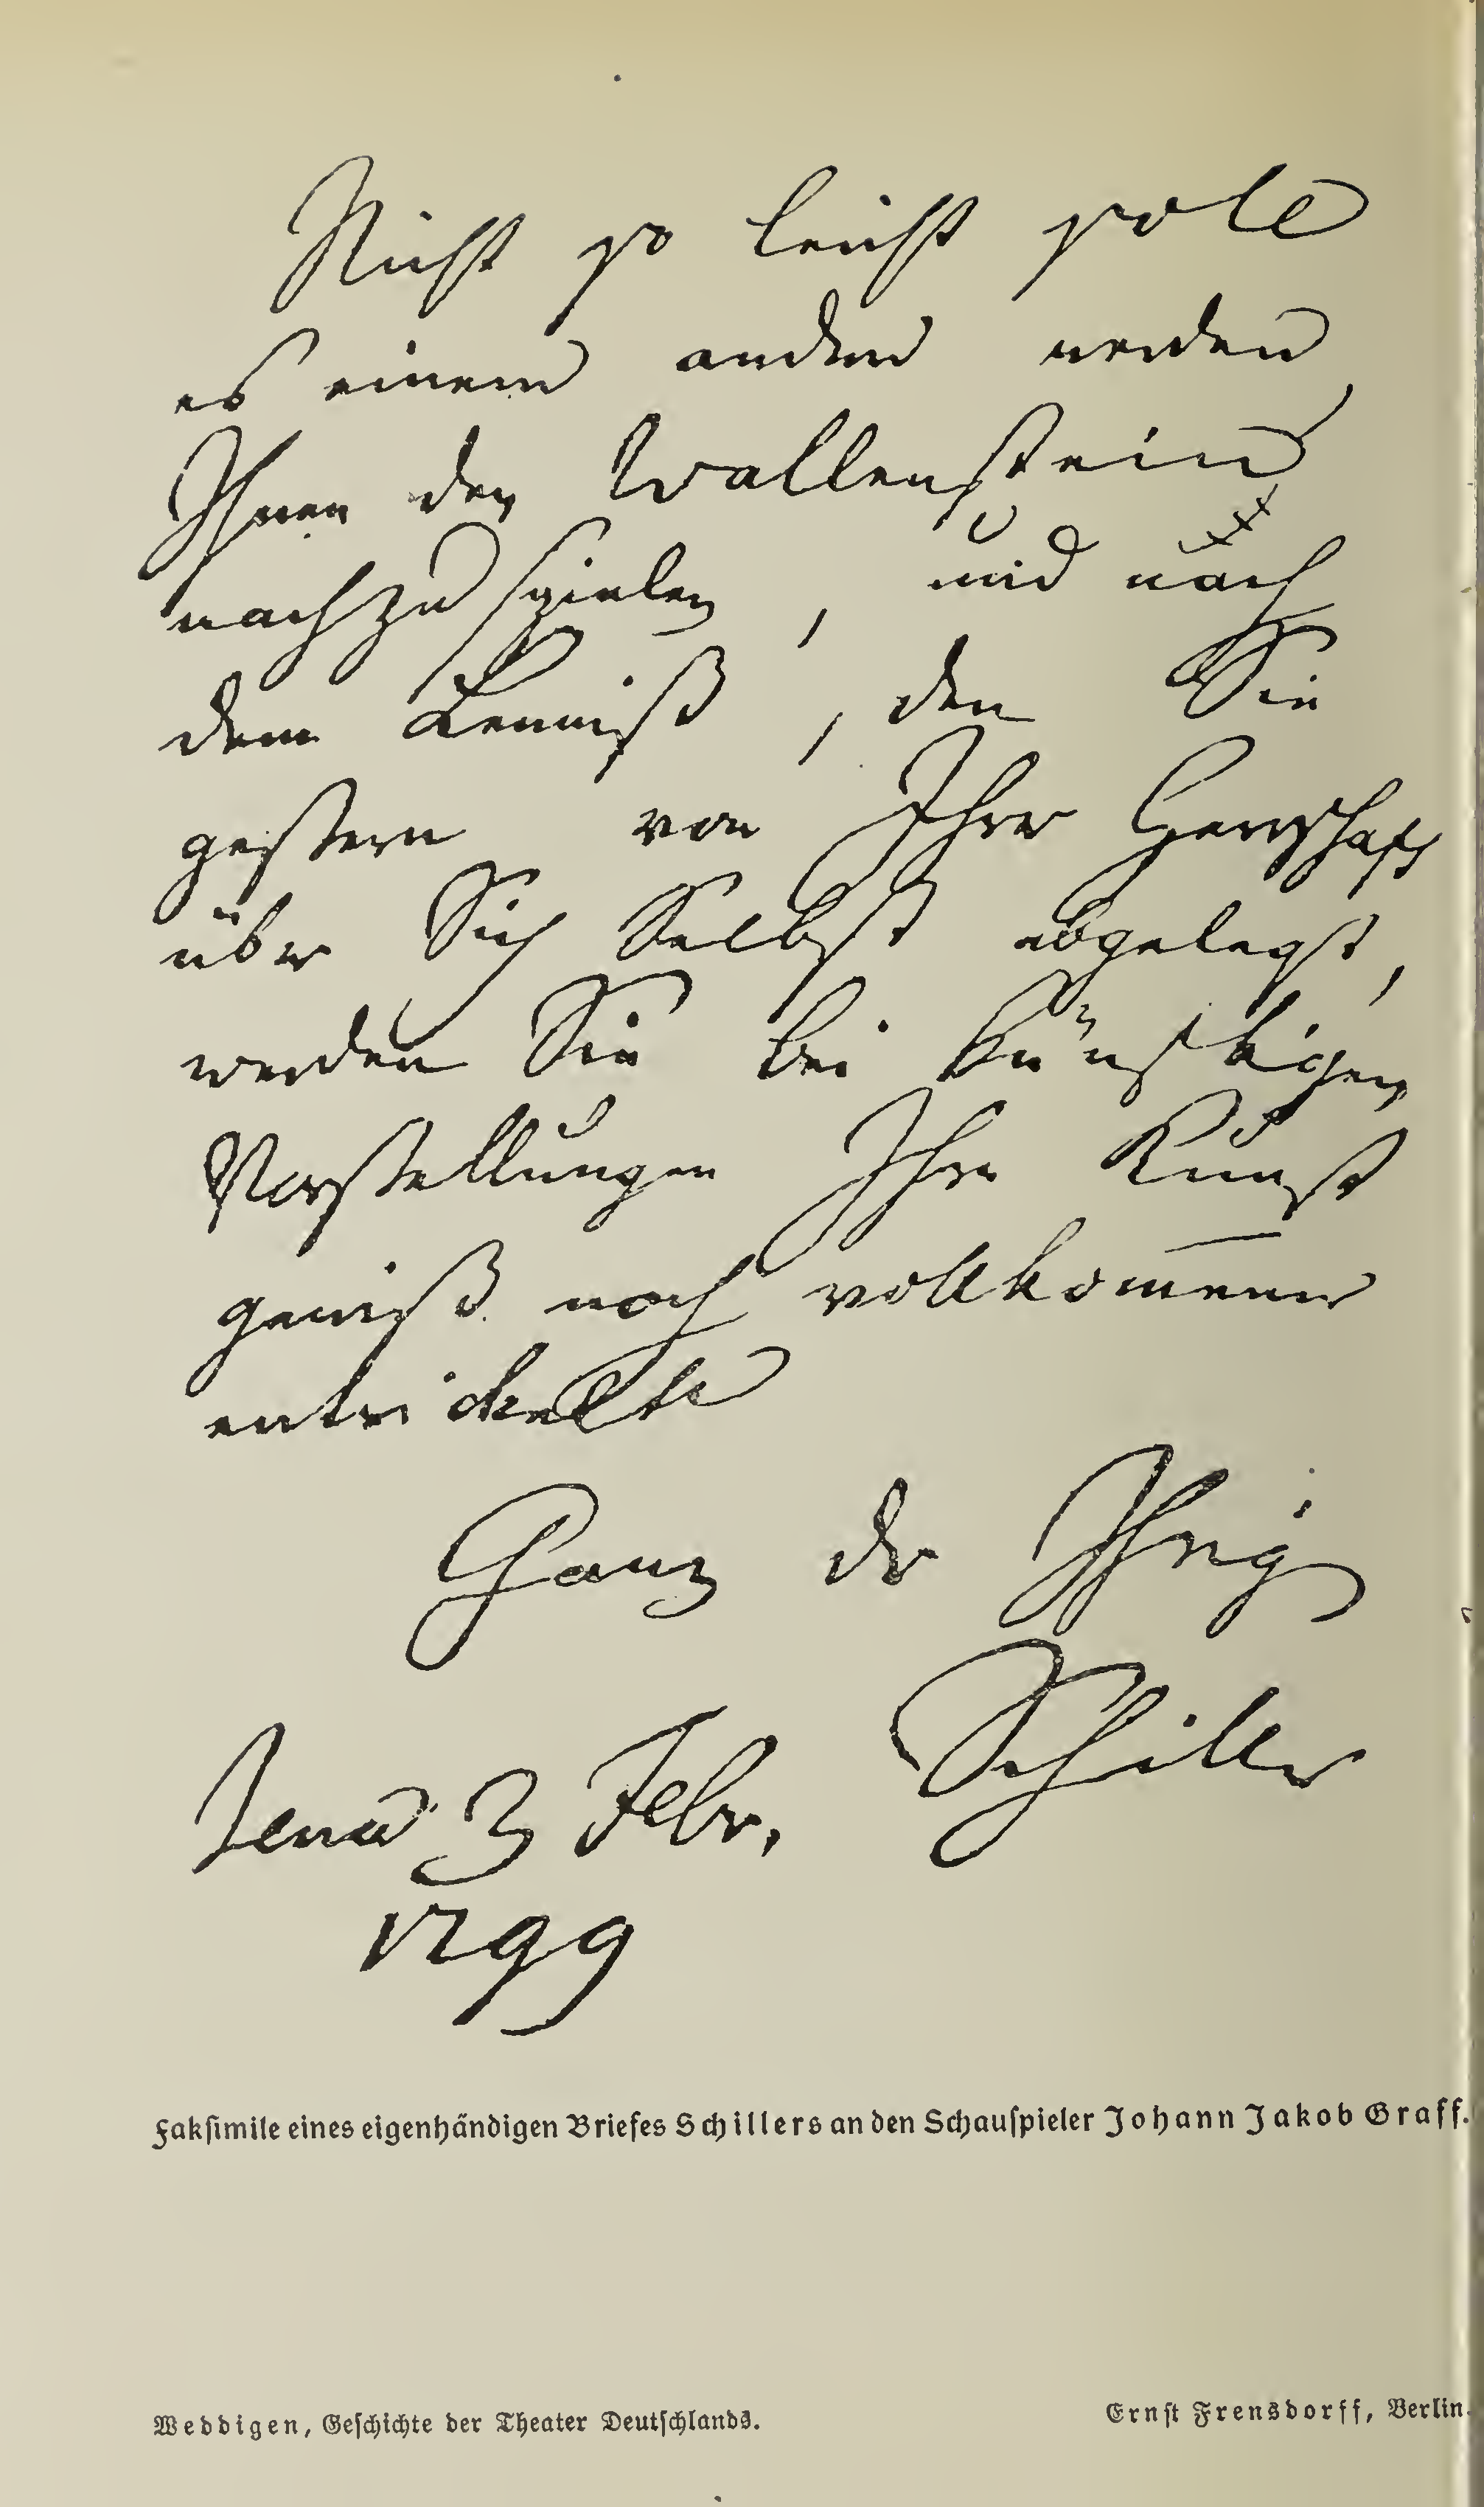 Nicht so leicht solle
es einem andern werden
Ihnen den Wallenstein,
nachzuspielen, und nach
dem Beweiß, den Sie
gestern von Ihrer Herrschaft
über Sich Selbst abgelegt,
werden Sie bei künftigen
Vorstellungen Ihre Kunst
gewiß noch vollkom̄ener
entwickeln
Ganz der Ihrige
Schiller
Jena 3 Febr.
1799
Fakſimile eines eigenhändigen Briefes Schillers an den Schauſpieler Johann Jakob Graff.
Weddigen, Geſchichte der Theater Deutſchlands.
Ernſt Frensdorff, Berlin.